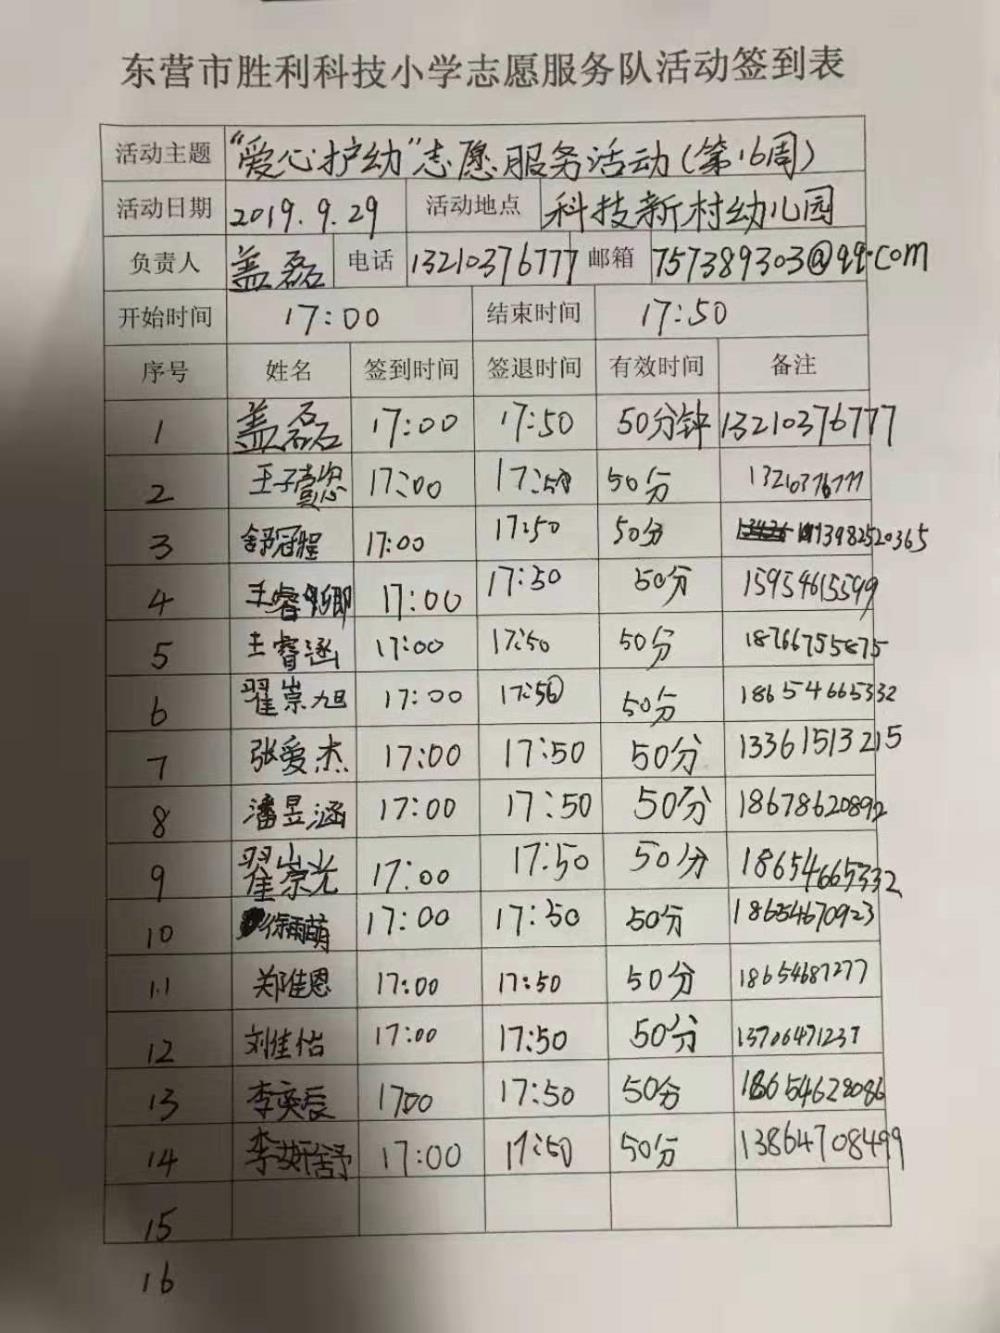 东营市胜利科技小学志愿服务队活动签到表
活动主题 "爱心护幼"志愿服务活动(第16周)
活动日期 2019.9.29 活动地点 科技新村幼儿园
负责人 盖磊 电话 13210376777 邮箱 757389303@qq.com
开始时间 17:00 结束时间 17:50
序号 姓名 签到时间 签退时间 有效时间 备注
1 盖磊 17:00 17:50 50分钟 13210376777
2 王子懿 17:00 17:50 50分 13210376777
3 舒冠程 17:00 17:50 50分 13982520365
4 王睿卿 17:00 17:50 50分 15954615599
5 王睿涵 17:00 17:50 50分 18766755875
6 翟崇旭 17:00 17:50 50分 18654665332
7 张爱杰 17:00 17:50 50分 13361513215
8 潘昱涵 17:00 17:50 50分 18678620892
9 翟崇光 17:00 17:50 50分 18654665332
10 徐雨萌 17:00 17:50 50分 18654670923
11 郑佳恩 17:00 17:50 50分 18654687277
12 刘佳怡 17:00 17:50 50分 13706471237
13 李奕辰 1700 17:50 50分 18654628086
14 李妍舒 17:00 17:50 50分 13864708499
15
16